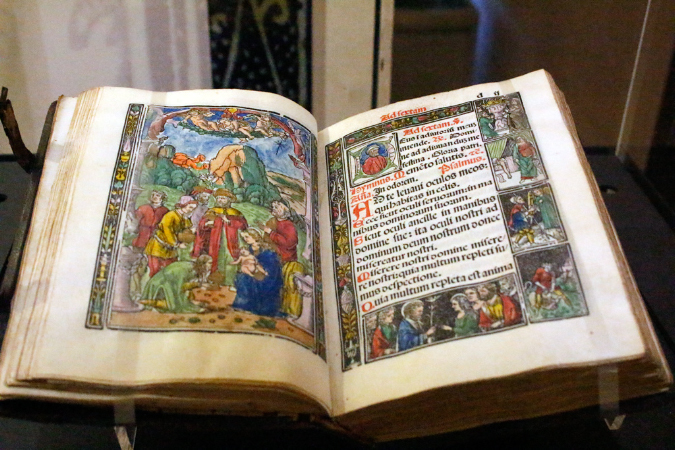 Ad sextam
Ad sextam. S.
Eus in adiutoriū meū
intende. R. Domi
ne ad adiuuandū me
festina. Gloria patri.
Hymnus. Memēto salutis.
Añā. In odorem. Psalmus.
AD te leuaui oculos meos:
qui habitas in celis.
Ecce sicut oculi seruorum: in ma
nibus dominorum suorum.
Sicut oculi ancille in manibus
domine sue: ita oculi nostri ad
dominum deum nostrum donec
misereatur nostri
Miserere nostri domine misere
re nostri: quia multum repleti su
mus despectione.
Quia multum repleta est anima